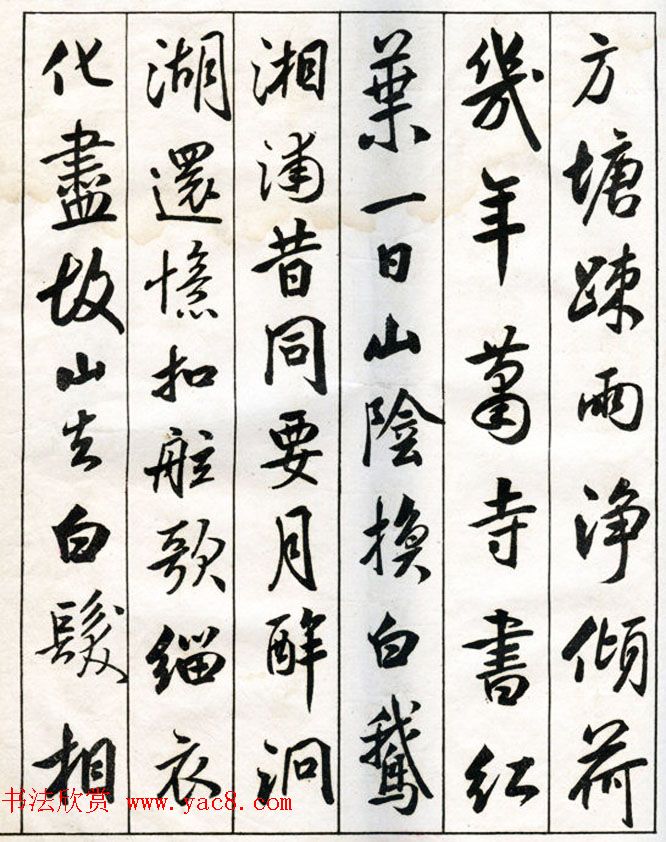 方塘疎雨净傾荷
幾年蕭寺書紅
葉一日山陰換白鵝
湘浦昔同要月醉洞
湖還憶扣舷歌緇衣
化盡故山去白髮相
书法欣赏 www.yac8.com